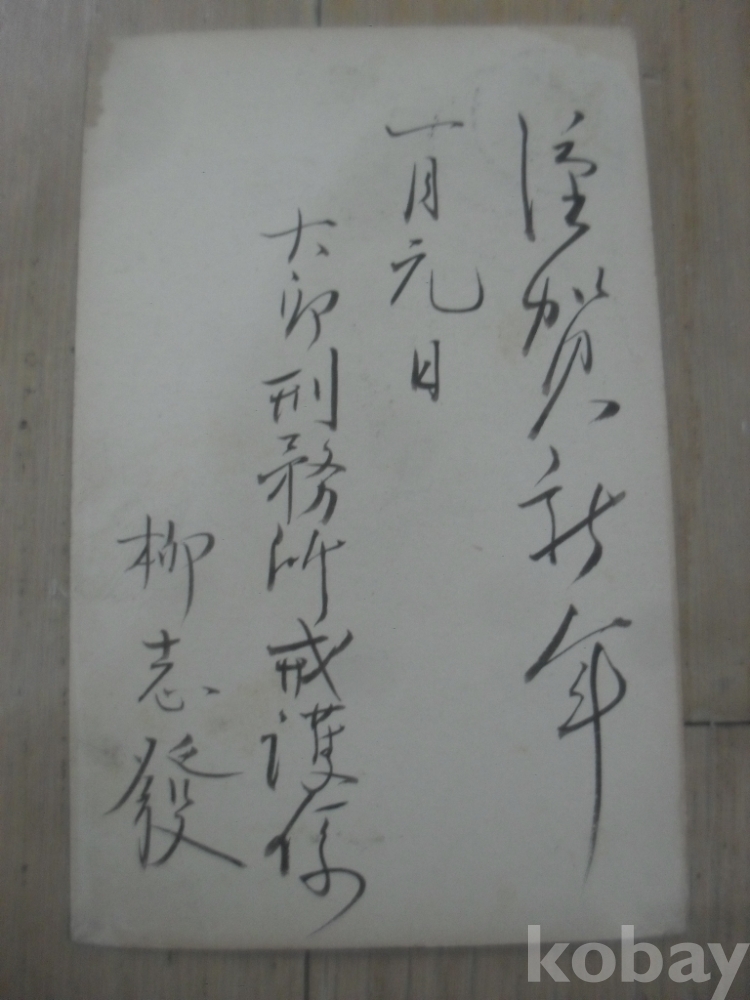 謹賀新年
一月元旦
大邱刑務所戒護係
柳志發
kobay